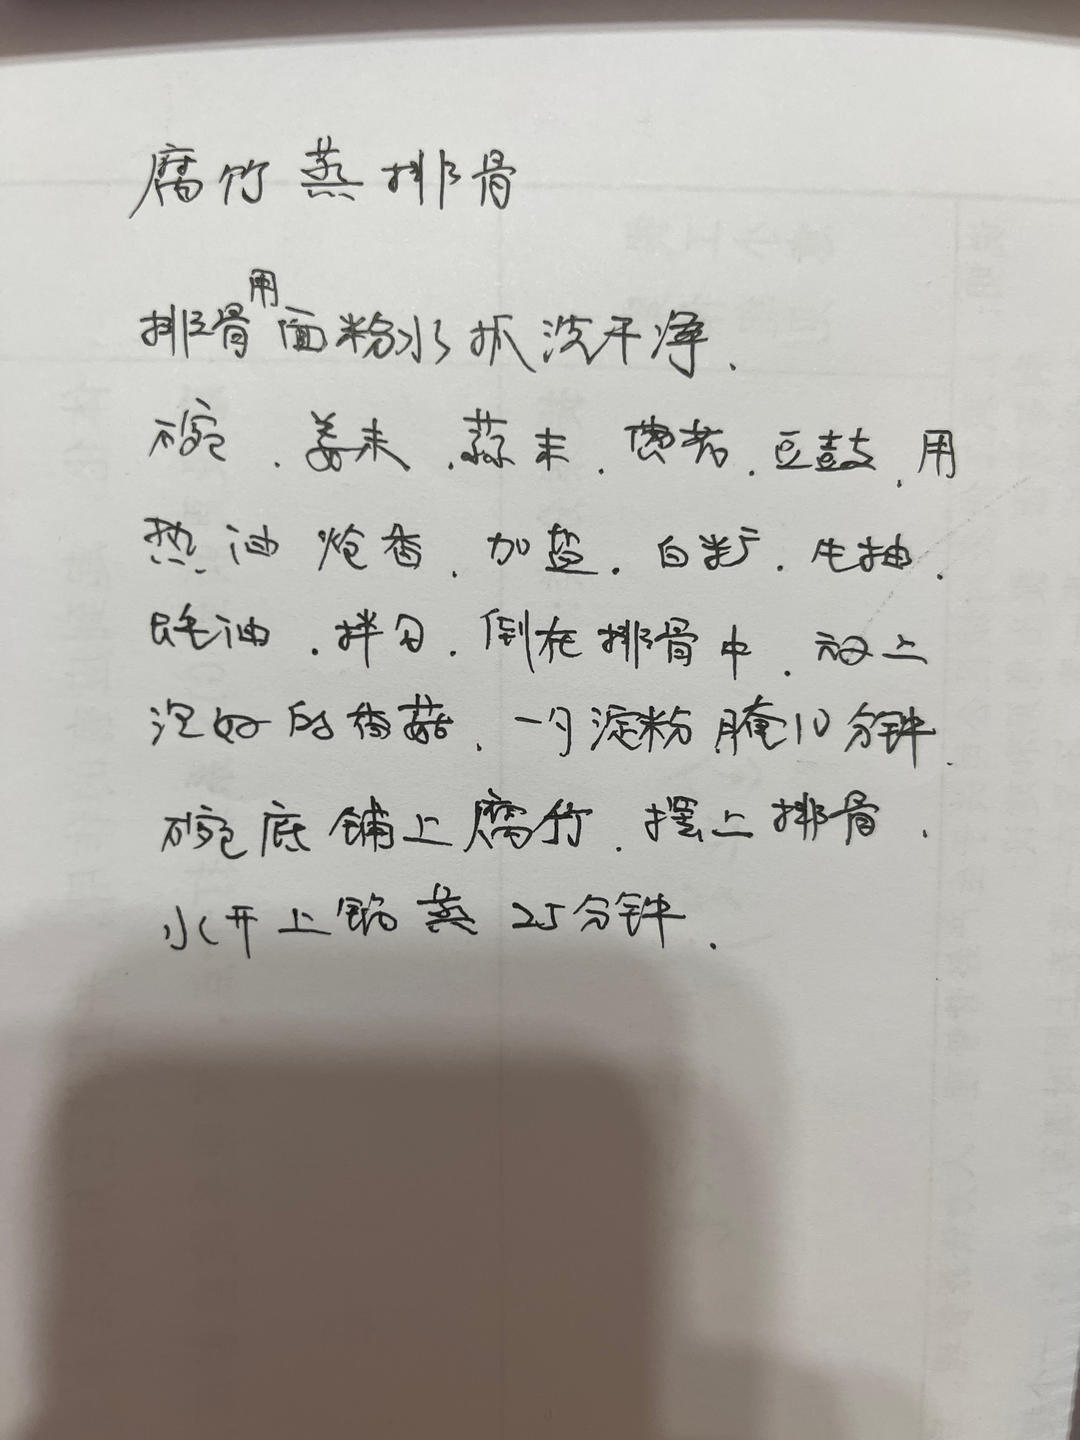 腐竹蒸排骨
排骨用面粉水抓洗干净.
碗.姜末.蒜末.黄酱.豆鼓.用
热油炝香.加盐.白糖.生抽.
蚝油.拌匀.倒在排骨中.放上
泡好的香菇.一勺淀粉腌10分钟.
碗底铺上腐竹.摆上排骨.
水开上锅蒸25分钟.